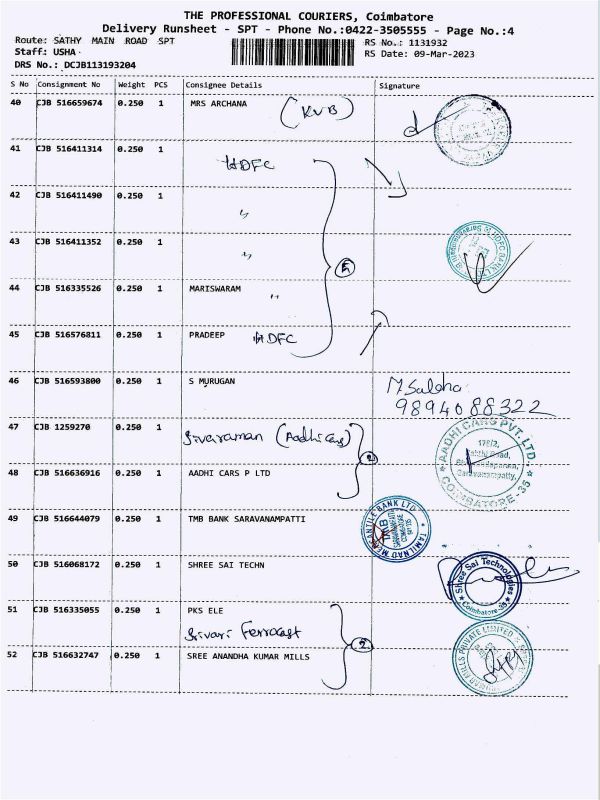 THE PROFESSIONAL COURIERS, Coimbatore
Delivery Runsheet - SPT - Phone No.:0422-3505555 - Page No.:4
Route: SATHY MAIN ROAD SPT RS No.: 1131932
Staff: USHA RS Date: 09-Mar-2023
DRS No.: DCJB113193204
S No Consignment No Weight PCS Consignee Details Signature
40 CJB 516659674 0.250 1 MRS ARCHANA (KVB)
41 CJB 516411314 0.250 1 HDFC
42 CJB 516411490 0.250 1 "
43 CJB 516411352 0.250 1 "
44 CJB 516335526 0.250 1 MARISWARAM "
5
45 CJB 516576811 0.250 1 PRADEEP HDFC
46 CJB 516593800 0.250 1 S MURUGAN
9894088322
47 CJB 1259270 0.250 1 Sivaraman (Aadhi Cars)
AADHI CARS PVT. LTD.
178/2,
Saravanampatty,
COIMBATORE-35
2
48 CJB 516636916 0.250 1 AADHI CARS P LTD
49 CJB 516644079 0.250 1 TMB BANK SARAVANAMPATTI
TAMILNAD MERCANTILE BANK LTD
TMB
50 CJB 516068172 0.250 1 SHREE SAI TECHN
Shree Sai Technologies
Coimbatore-35
51 CJB 516335055 0.250 1 PKS ELE
Srivari Ferrocast
2
52 CJB 516632747 0.250 1 SREE ANANDHA KUMAR MILLS